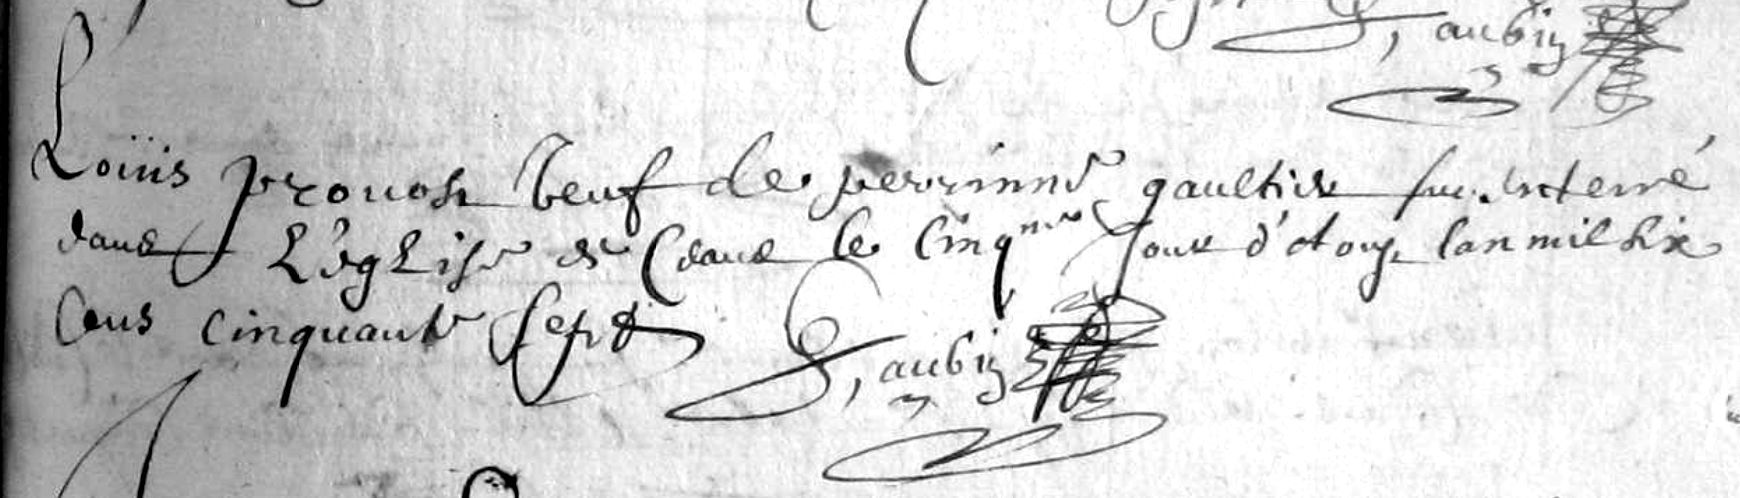 aubin
Loüis prouost veuf de perrinne gaultier fut enterré
dans L'eglise de Ceans le cinq^me Jour d'octou. lan mil six
cens cinquante sept
aubin